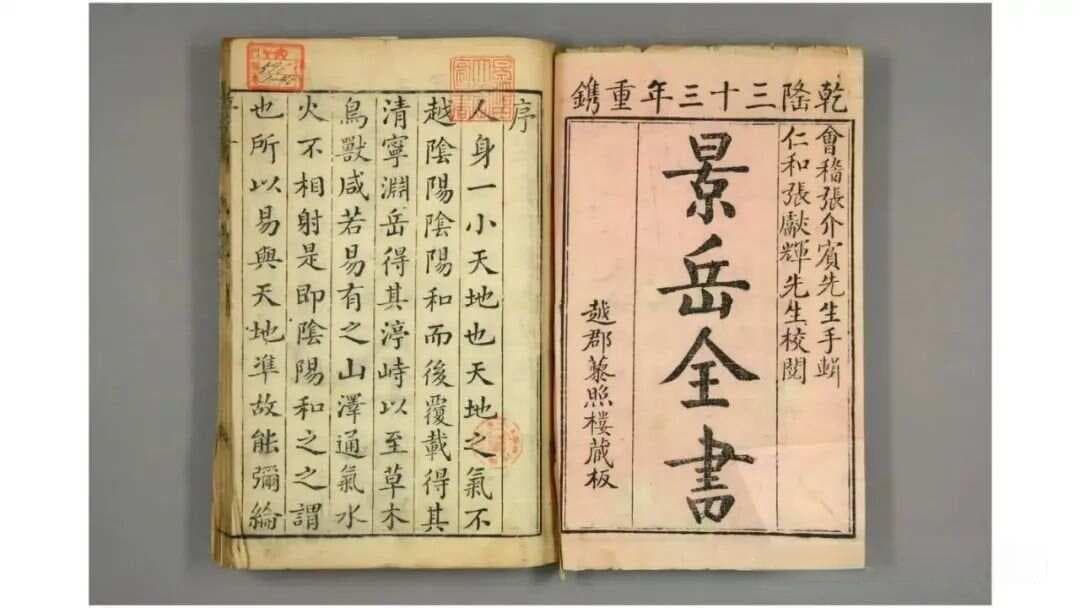 乾隆三十三年重鐫
會稽張介賓先生手輯
仁和張獻輝先生校閱
景岳全書
越郡藜照樓蔵板
序
人身一小天地也天地之氣不
越陰陽陰陽和而後覆載得其
清寧淵岳得其渟峙以至草木
鳥獸咸若易有之山澤通氣水
火不相射是即陰陽和之之謂
也所以易與天地準故能彌綸